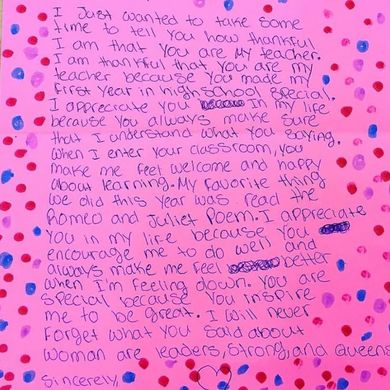 I Just wanted to take some
time to tell you how thankful
I am that you are my teacher.
I am thankful that you are my
teacher because you made my
first year in high school special.
I appreciate you in my life
because you always make sure
that I understand what you saying.
When I enter your classroom, you
make me feel welcome and happy
about learning. My favorite thing
we did this year was read the
Romeo and Juliet Poem. I appreciate
you in my life because you
encourage me to do well and
always make me feel better
when I'm feeling down. You are
special because you inspire
me to be great. I will never
forget what you said about
woman are leaders, strong, and queens
Sincerely,